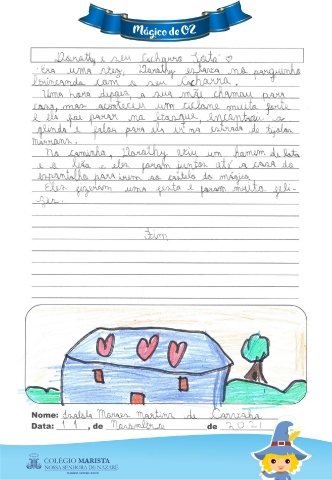 Mágico de OZ
Dorothy e seu Cachorro Totó
Era uma vez, Dorathy estava no parquinho
brincando com o seu Cachorro.
Uma hora depois, a sua mãe chamou para
casa, mas aconteceu um ciclone muito forte
e ela foi parar na , encontrou a
glinda e falou para ela ir na estrada de tijolos
No caminho, Dorathy viu um homem de lata
e o leão e eles foram juntos até a casa do
espantalho para irem ao castelo do mágico.
Eles fizeram uma festa e foram muito feli-
zes.
Fim
Nome: Moraes Martins de Carvalho
Data: 11, de Novembro de 2021
COLÉGIO MARISTA
NOSSA SENHORA DE NAZARÉ